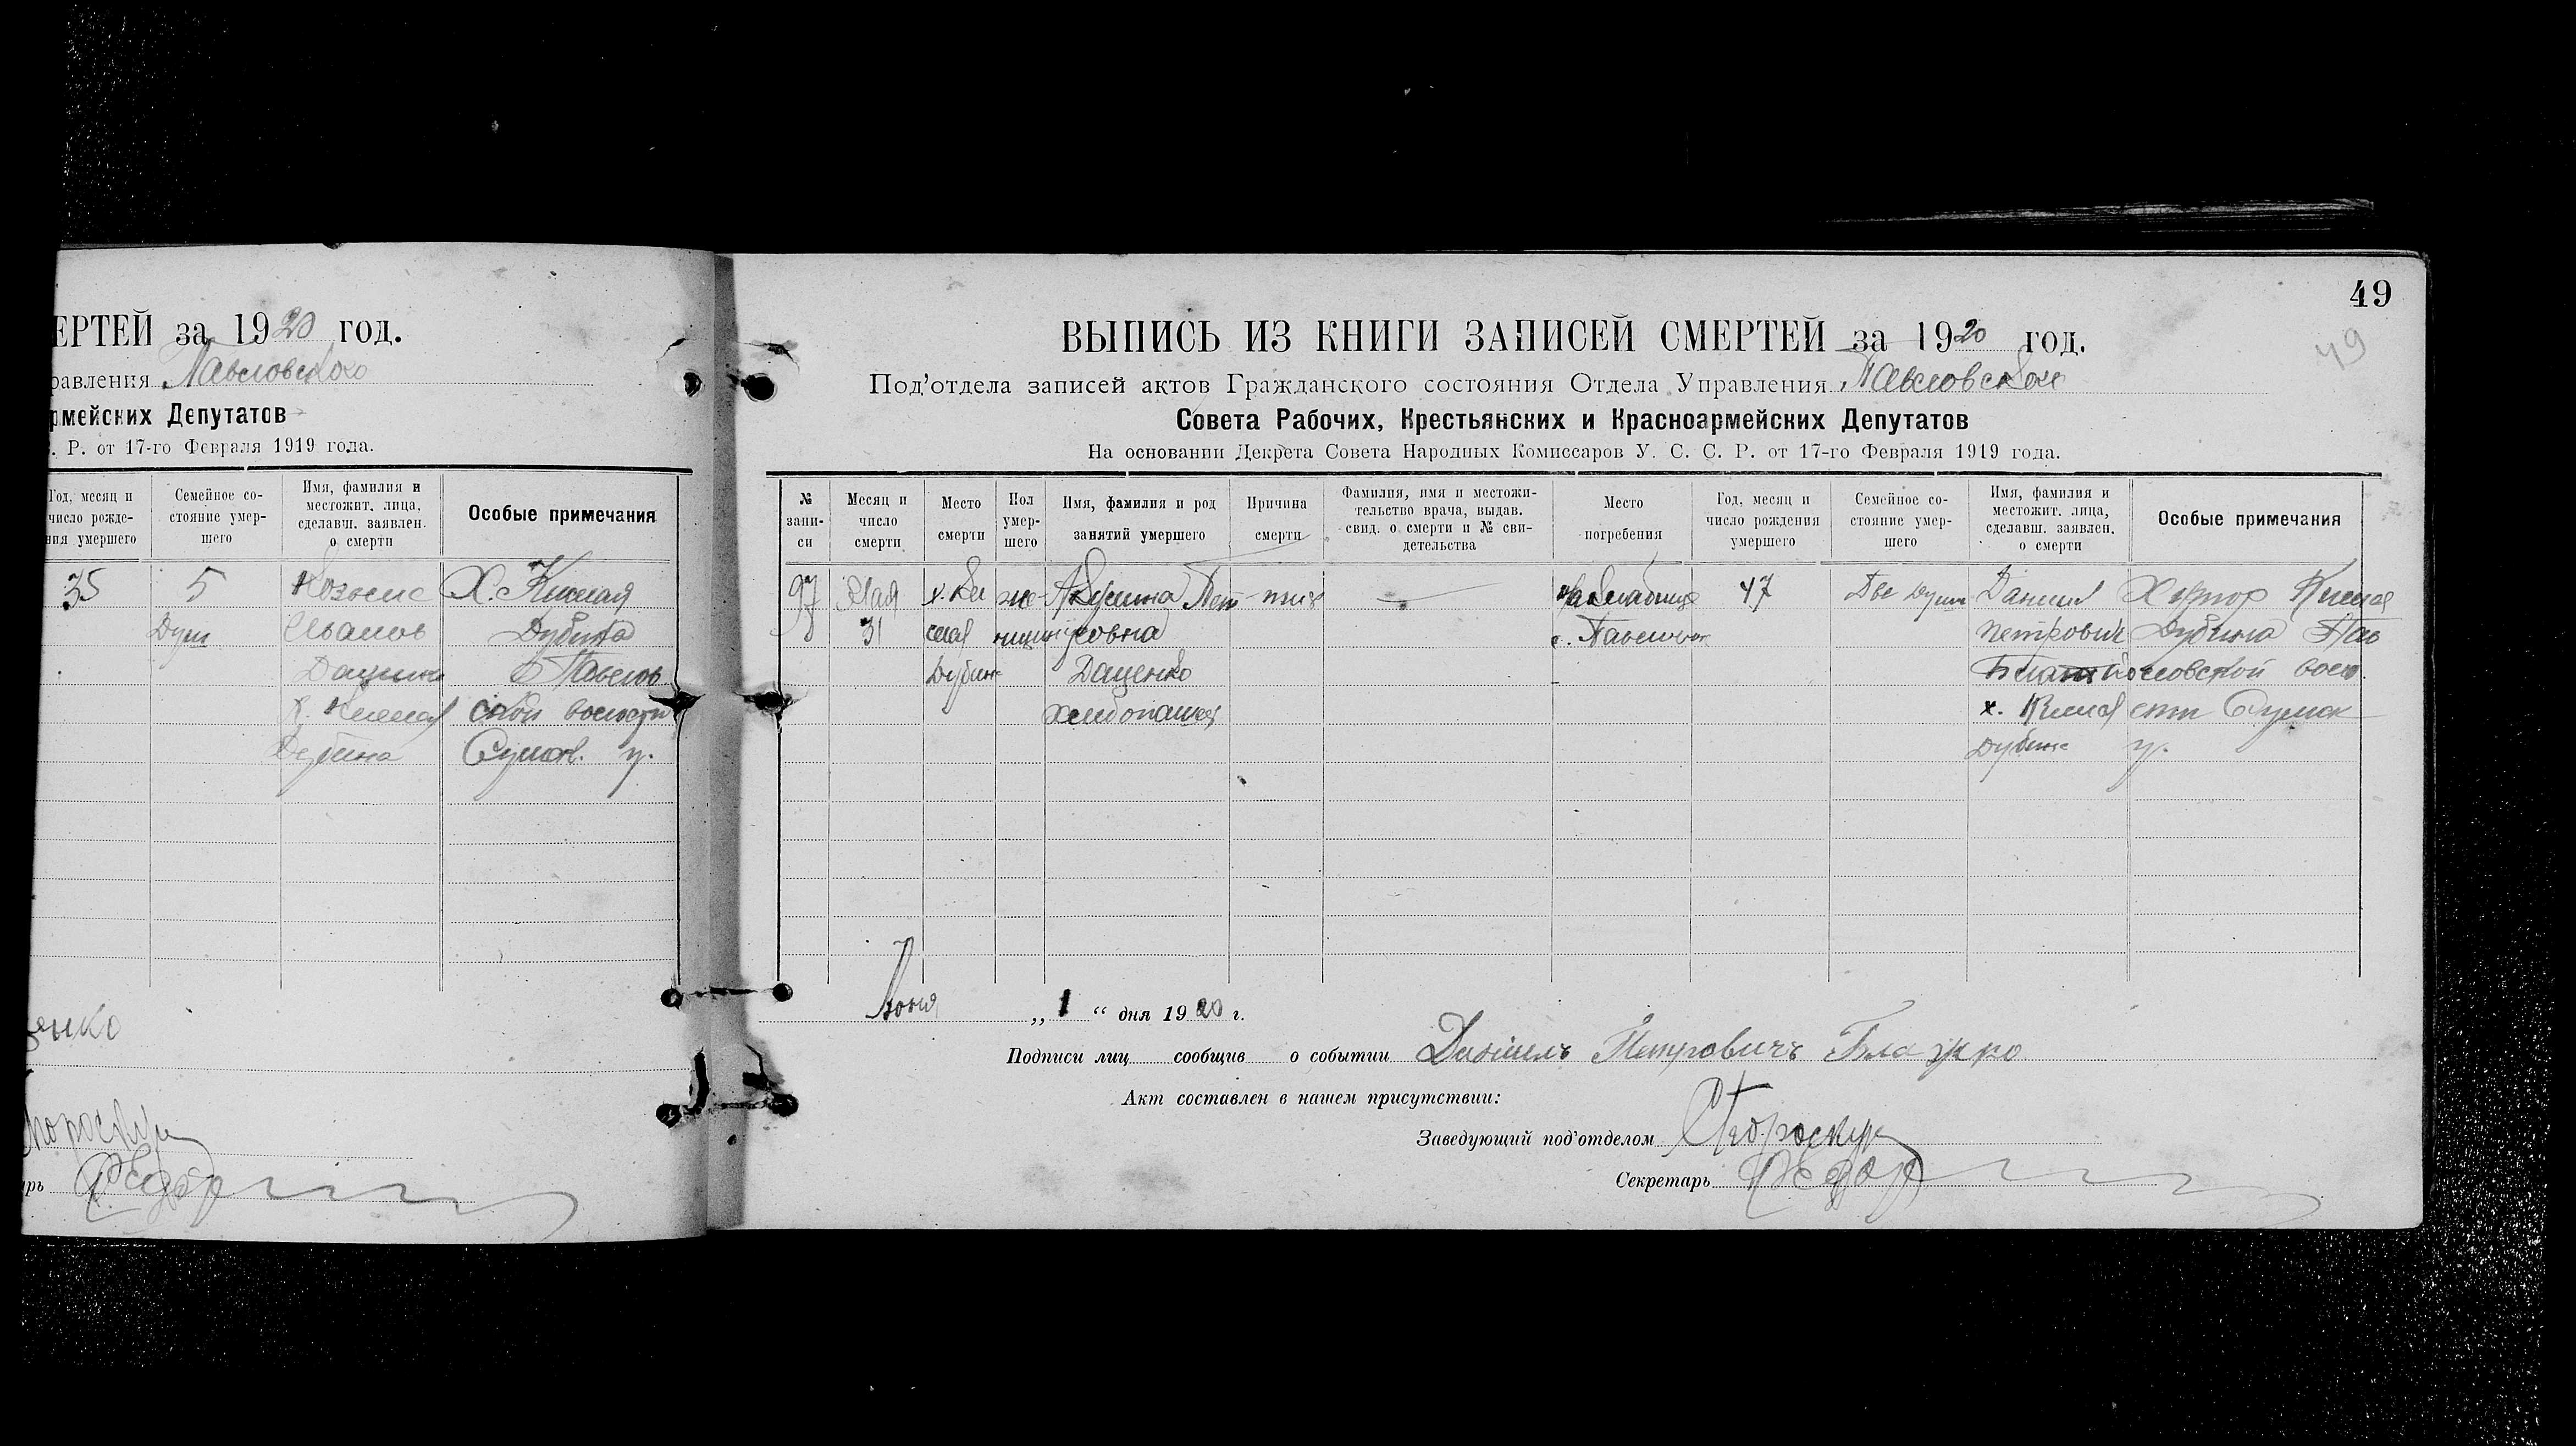 ЕРТЕЙ за 1920 год.
равления Павловского
рмейских Депутатов
. Р. от 17-го Февраля 1919 года.
Год, месяц и число рожде-ния умершего
Семейное со-стояние умер-шего
Имя, фамилия и местожит. лица, сделавш. заявлен. о смерти
Особые примечания
35 5 Козьма Х. Кислая
Душ Иванов Дубина
Даценко Павлов
х. Кислая ской волости
Дубина Сумск. у.
енко
49
49
ВЫПИСЬ ИЗ КНИГИ ЗАПИСЕЙ СМЕРТЕЙ за 1920 год.
Под'отдела записей актов Гражданского состояния Отдела Управления Павловского
Совета Рабочих, Крестьянских и Красноармейских Депутатов
На основании Декрета Совета Народных Комиссаров У. С. С. Р. от 17-го Февраля 1919 года.
№ запи-си
Месяц и число смерти
Место смерти
Пол умер-шего
Имя, фамилия и род занятий умершего
Причина смерти
Фамилия, имя и местожи-тельство врача, выдав. свид. о смерти и № сви-детельства
Место погребения
Год, месяц и число рождения умершего
Семейное со-стояние умер-шего
Имя, фамилия и местожит. лица, сделавш. заявлен. о смерти
Особые примечания
97 Мая х. Ки же- Акулина Пет- тиф На кладбище 47 Две души Данил Хутор Кислая
31 слая нщин ровна с. Павловки Петрович Дубина Пав
Дубина Даценко ловской воло
Хлебопашец х. Кислая сти Сумск
Дубина у.
Июня „ 1 “ дня 1920 г.
Подписи лиц сообщив о событии Данiилъ Петровичъ Блажко
Акт составлен в нашем присутствии:
Заведующий под'отделом
Секретарь